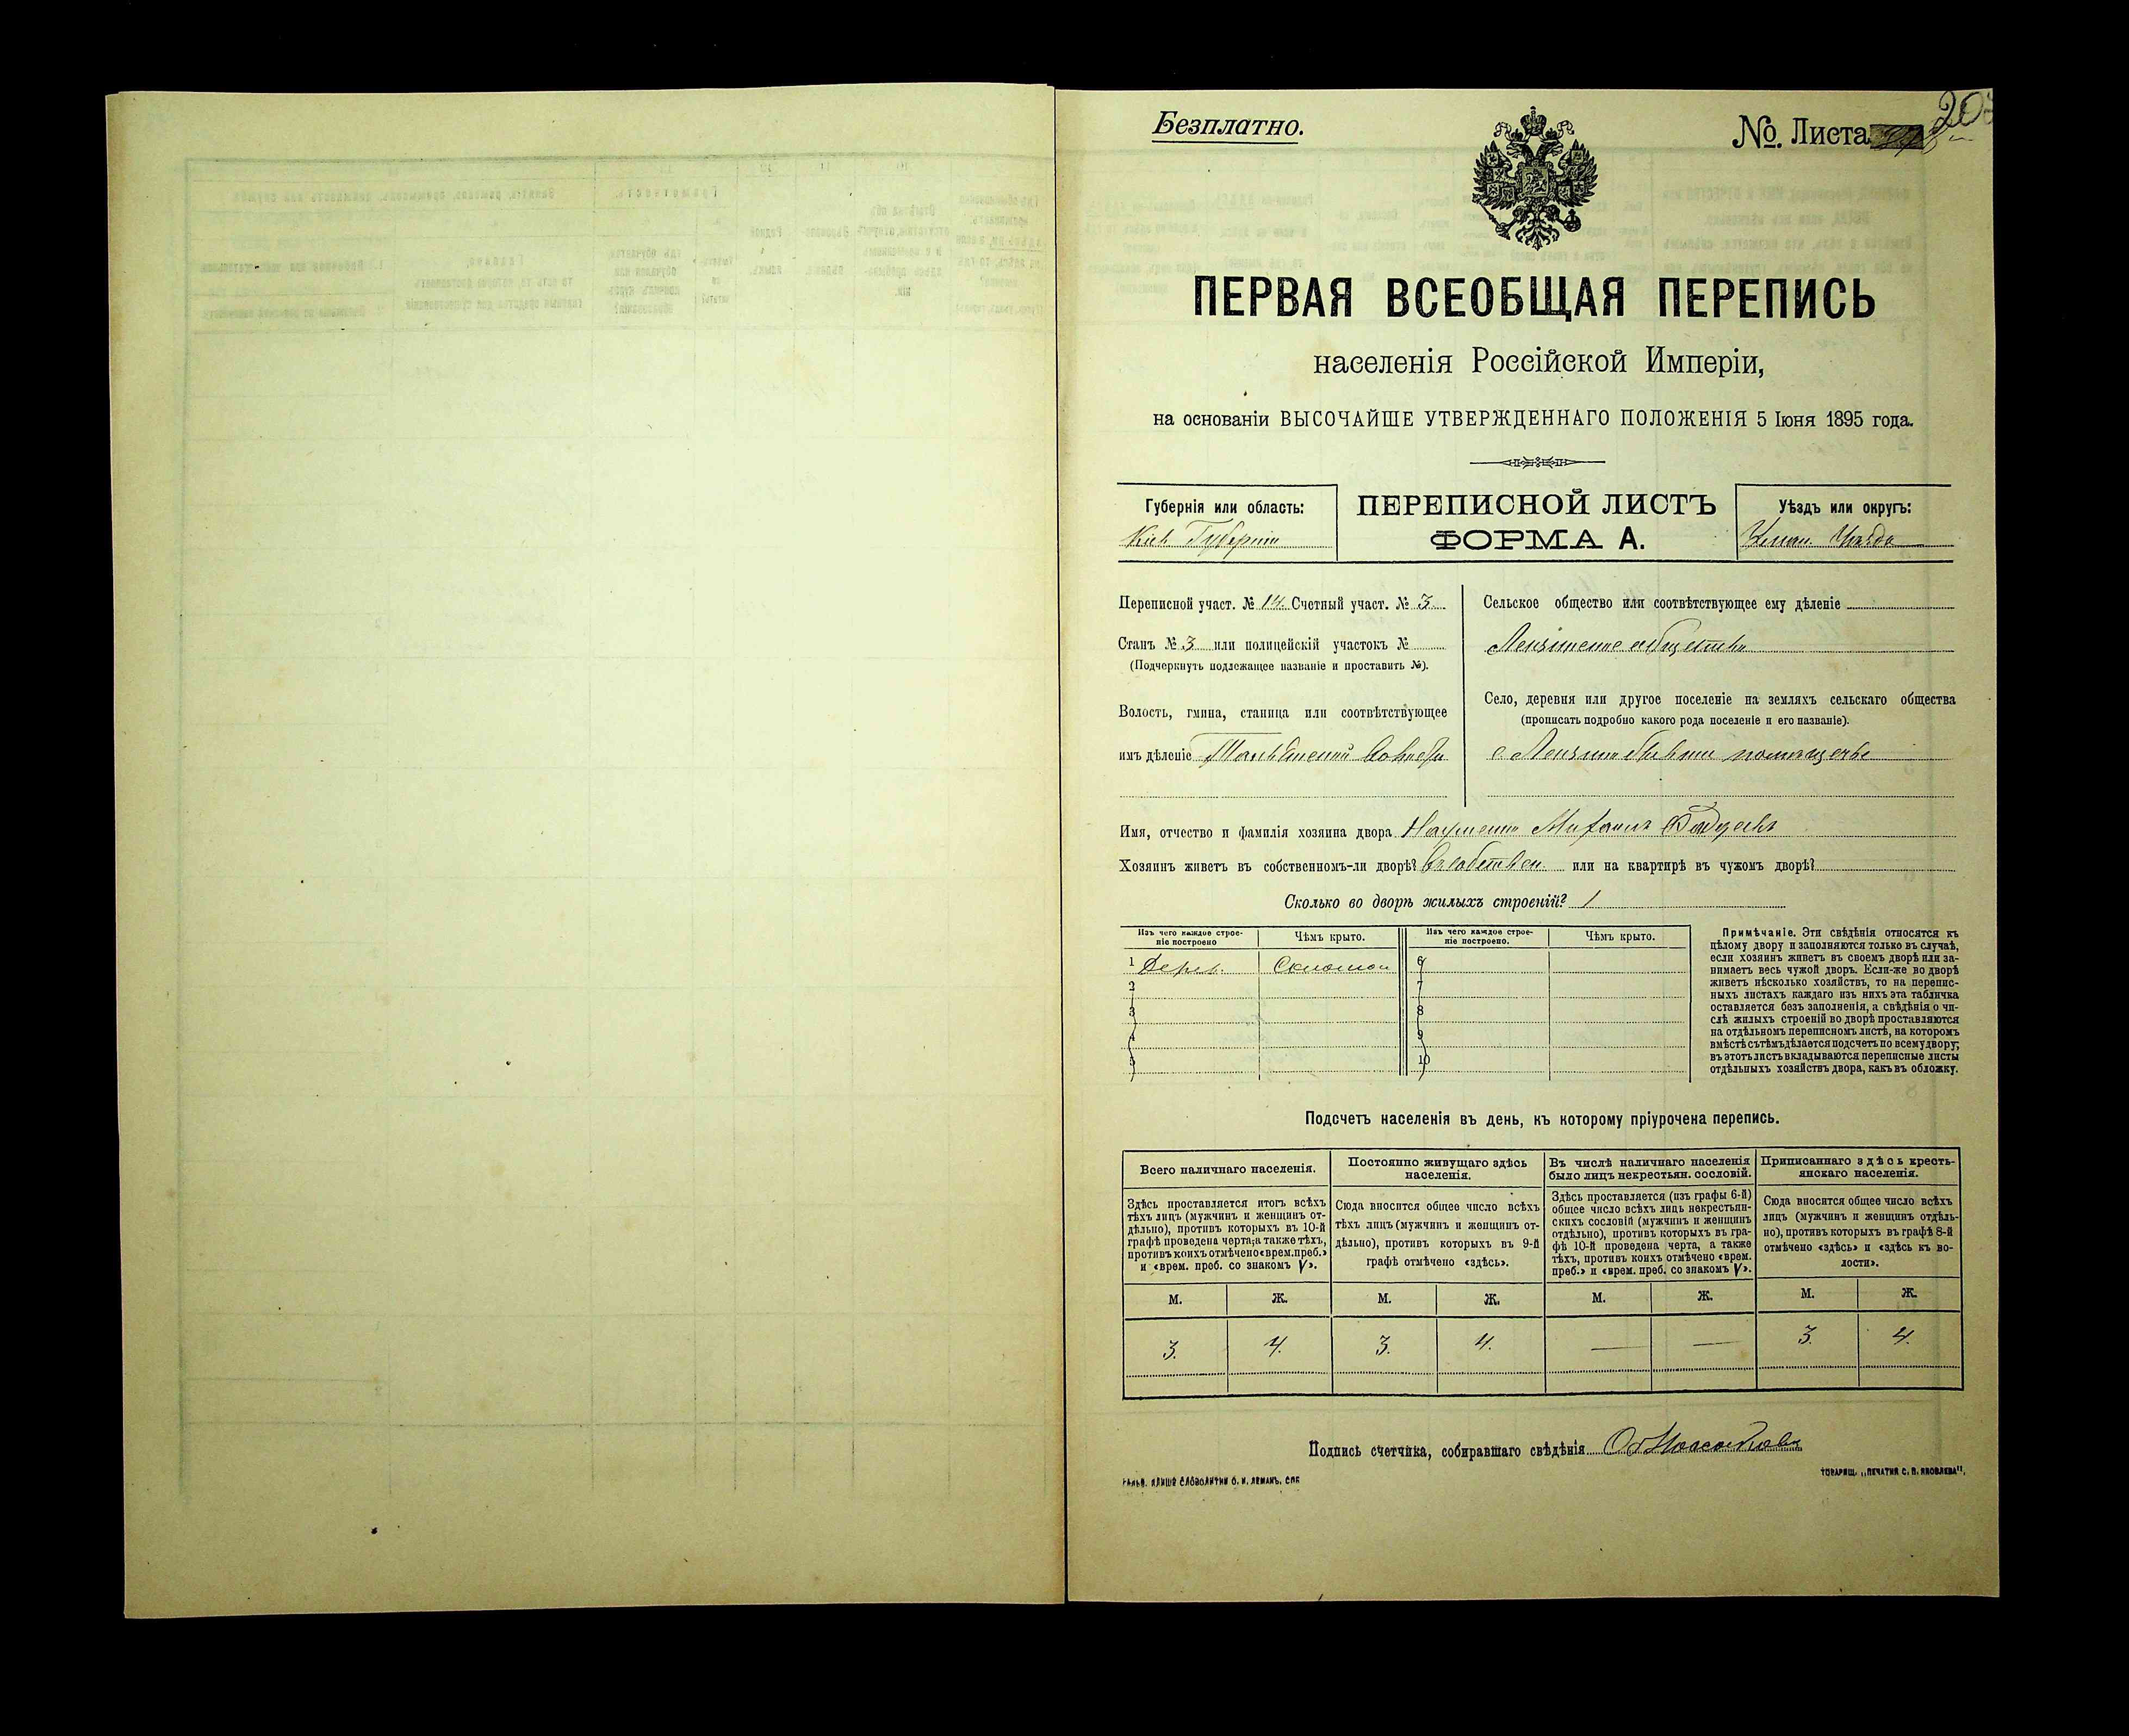 Безплатно.
№. Листа
ПЕРВАЯ ВСЕОБЩАЯ ПЕРЕПИСЬ
населенія Россійской Имперіи,
на основаніи ВЫСОЧАЙШЕ УТВЕРЖДЕННАГО ПОЛОЖЕНІЯ 5 Іюня 1895 года.
Губернія или область:
Кіев Губерніи
ПЕРЕПИСНОЙ ЛИСТЪ
ФОРМА А.
Уѣздъ или округъ:
Уман. Уѣзда
Переписной участ. № 14. Счетный участ. № 3
Станъ № 3 или полицейскій участокъ №
(Подчеркнуть подлежащее названіе и проставить №).
Волость, гмина, станица или соотвѣтствующее
имъ дѣленіе
Сельское общество или соотвѣтствующее ему дѣленіе
Село, деревня или другое поселеніе на земляхъ сельскаго общества
(прописать подробно какого рода поселеніе и его названіе).
Имя, отчество и фамилія хозяина двора
Хозяинъ живетъ въ собственномъ-ли дворѣ? или на квартирѣ въ чужомъ дворѣ?
Сколько во дворѣ жилыхъ строеній? 1
Изъ чего каждое строе-
ніе построено
Чѣмъ крыто.
Изъ чего каждое строе-
ніе построено.
Чѣмъ крыто.
1 Дерев. Соломой 6
2 7
3 8
4 9
5 10
Примѣчаніе. Эти свѣдѣнія относятся къ
цѣлому двору и заполняются только въ случаѣ,
если хозяинъ живетъ въ своемъ дворѣ или за-
нимаетъ весь чужой дворъ. Если-же во дворѣ
живетъ нѣсколько хозяйствъ, то на перепис-
ныхъ листахъ каждаго изъ нихъ эта табличка
оставляется безъ заполненія, а свѣдѣнія о чи-
слѣ жилыхъ строеній во дворѣ проставляются
на отдѣльномъ переписномъ листѣ, на которомъ
вмѣстѣ съ тѣмъ дѣлается подсчетъ по всему двору;
въ этотъ листъ вкладываются переписные листы
отдѣльныхъ хозяйствъ двора, какъ въ обложку.
Подсчетъ населенія въ день, къ которому пріурочена перепись.
Всего наличнаго населенія.
Здѣсь проставляется итогъ всѣхъ
тѣхъ лицъ (мужчинъ и женщинъ от-
дѣльно), противъ которыхъ въ 10-й
графѣ проведена черта; а также тѣхъ,
противъ коихъ отмѣчено «врем. преб.»
и «врем. преб. со знакомъ V».
Постоянно живущаго здѣсь
населенія.
Сюда вносится общее число всѣхъ
тѣхъ лицъ (мужчинъ и женщинъ от-
дѣльно), противъ которыхъ въ 9-й
графѣ отмѣчено «здѣсь».
Въ числѣ наличнаго населенія
было лицъ некрестьян. сословій.
Здѣсь проставляется (изъ графы 6-й)
общее число всѣхъ лицъ некрестьян-
скихъ сословій (мужчинъ и женщинъ
отдѣльно), противъ которыхъ въ гра-
фѣ 10-й проведена черта, а также
тѣхъ, противъ коихъ отмѣчено «врем.
преб.» и «врем. преб. со знакомъ V».
Приписаннаго здѣсь кресть-
янскаго населенія.
Сюда вносится общее число всѣхъ
лицъ (мужчинъ и женщинъ отдѣль-
но), противъ которыхъ въ графѣ 8-й
отмѣчено «здѣсь» и «здѣсь къ во-
лости».
М. Ж. М. Ж. М. Ж. М. Ж.
3. 4. 3. 4. — — 3. 4.
Подпись счетчика, собиравшаго свѣдѣнія
ТОВАРИЩ. „ПЕЧАТНЯ С. П. ЯКОВЛЕВА".